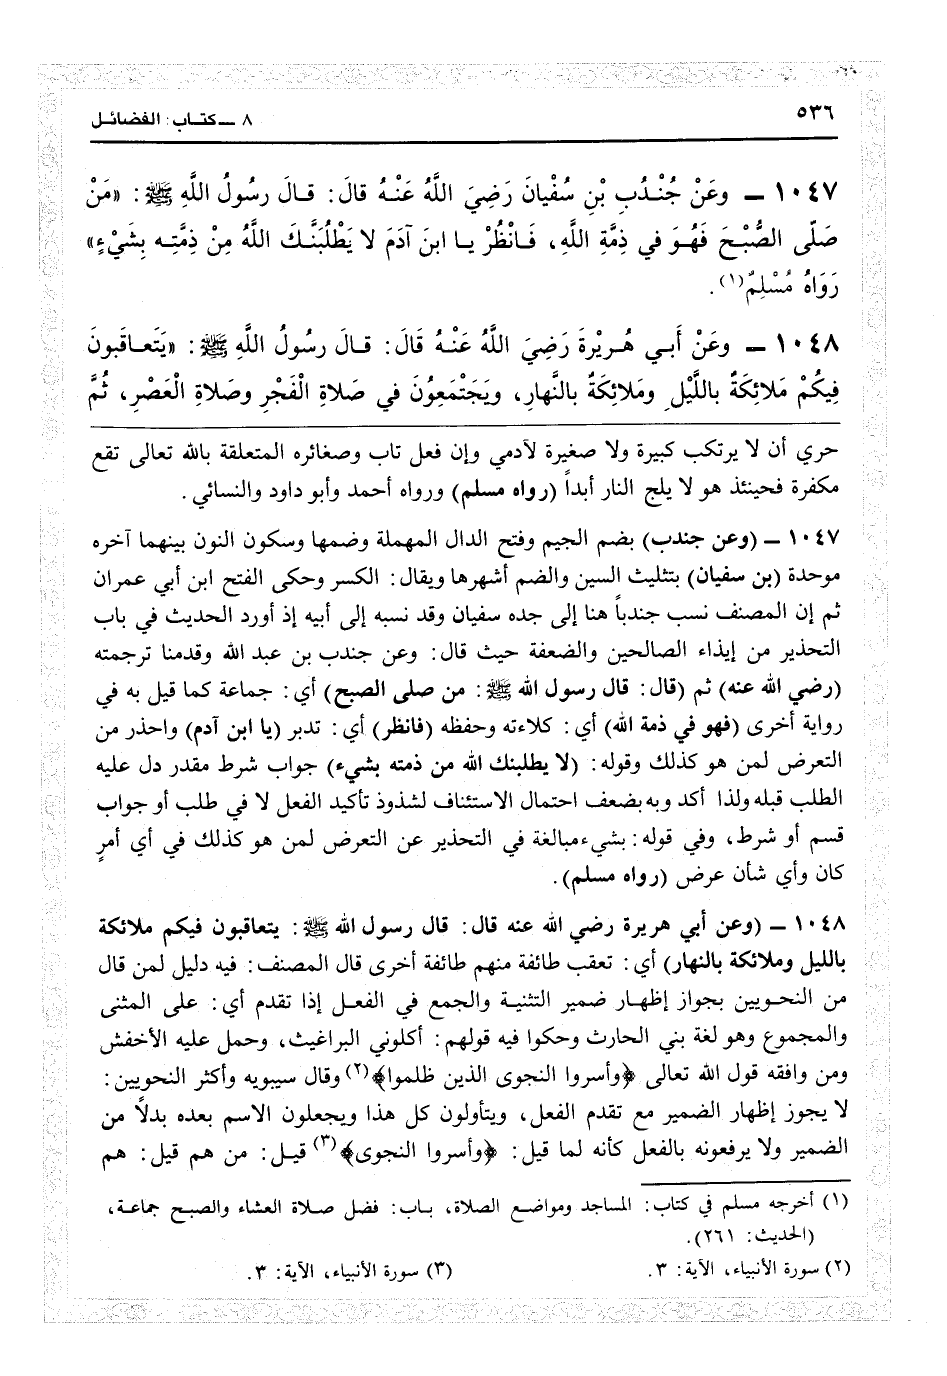 ٥٣٦
٨ ـ كتاب: الفضائل
١٠٤٧ ـ وعَنْ جُنْدُبِ بْنِ سُفْيانَ رَضِيَ اللَّهُ عَنْهُ قالَ: قالَ رسُولُ اللَّهِ ﷺ: «مَنْ
صَلَّى الصُّبْحَ فَهُوَ في ذِمَّةِ اللَّهِ، فَانْظُرْ يا ابنَ آدَمَ لا يَطْلُبَنَّكَ اللَّهُ مِنْ ذِمَّتِه بِشَيْءٍ»
رَوَاهُ مُسْلِمٌ(١).
١٠٤٨ ـ وعَنْ أَبي هُرَيْرةَ رَضِيَ اللَّهُ عَنْهُ قَالَ: قالَ رسُولُ اللَّهِ ﷺ: «يَتَعاقَبونَ
فِيكُمْ مَلائِكَةٌ باللَّيْلِ ومَلائِكَةٌ بالنَّهارِ، ويَجْتَمِعُوْنَ في صَلاةِ الْفَجْرِ وصَلاةِ الْعَصْرِ، ثُمَّ
حري أن لا يرتكب كبيرة ولا صغيرة لآدمي وإن فعل تاب وصغائره المتعلقة بالله تعالى تقع
مكفرة فحينئذ هو لا يلج النار أبداً (رواه مسلم) ورواه أحمد وأبو داود والنسائي.
١٠٤٧ ـ (وعن جندب) بضم الجيم وفتح الدال المهملة وضمها وسكون النون بينهما آخره
موحدة (بن سفيان) بتثليث السين والضم أشهرها ويقال: الكسر وحكى الفتح ابن أبي عمران
ثم إن المصنف نسب جندباً هنا إلى جده سفيان وقد نسبه إلى أبيه إذ أورد الحديث في باب
التحذير من إيذاء الصالحين والضعفة حيث قال: وعن جندب بن عبد الله وقدمنا ترجمته
(رضي الله عنه) ثم (قال: قال رسول الله ﷺ: من صلى الصبح) أي: جماعة كما قيل به في
رواية أخرى (فهو في ذمة الله) أي: كلاءته وحفظه (فانظر) أي: تدبر (يا ابن آدم) واحذر من
التعرض لمن هو كذلك وقوله: (لا يطلبنك الله من ذمته بشيء) جواب شرط مقدر دل عليه
الطلب قبله ولذا أكد وبه يضعف احتمال الاستئناف لشذوذ تأكيد الفعل لا في طلب أو جواب
قسم أو شرط، وفي قوله: بشيء مبالغة في التحذير عن التعرض لمن هو كذلك في أي أمرٍ
كان وأي شأن عرض (رواه مسلم).
١٠٤٨ ـ (وعن أبي هريرة رضي الله عنه قال: قال رسول الله ﷺ: يتعاقبون فيكم ملائكة
بالليل وملائكة بالنهار) أي: تعقب طائفة منهم طائفة أخرى قال المصنف: فيه دليل لمن قال
من النحويين بجواز إظهار ضمير التثنية والجمع في الفعل إذا تقدم أي: على المثنى
والمجموع وهو لغة بني الحارث وحكوا فيه قولهم: أكلوني البراغيث، وحمل عليه الأخفش
ومن وافقه قول الله تعالى ﴿وأسروا النجوى الذين ظلموا﴾(٢) وقال سيبويه وأكثر النحويين:
لا يجوز إظهار الضمير مع تقدم الفعل، ويتأولون كل هذا ويجعلون الاسم بعده بدلاً من
الضمير ولا يرفعونه بالفعل كأنه لما قيل: ﴿وأسروا النجوى﴾(٣) قيل: من هم قيل: هم
(١) أخرجه مسلم في كتاب: المساجد ومواضع الصلاة، باب: فضل صلاة العشاء والصبح جماعة،
(الحديث: ٢٦١).
(٢) سورة الأنبياء، الآية: ٣.
(٣) سورة الأنبياء، الآية: ٣.